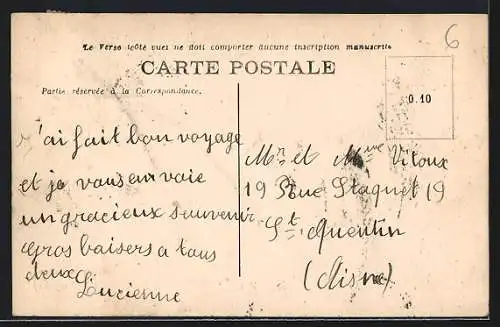 6
Le Verso (côté vue) ne doit comporter aucune inscription manuscrite
CARTE POSTALE
Partie réservée à la Correspondance.
0.10
J'ai fait bon voyage
et je vous en voie
un gracieux souvenir
gros baisers a tous
deux
Lucienne
Mr et Mme Vitoux
19 Rue Staquet 19
St Quentin
(Aisne)